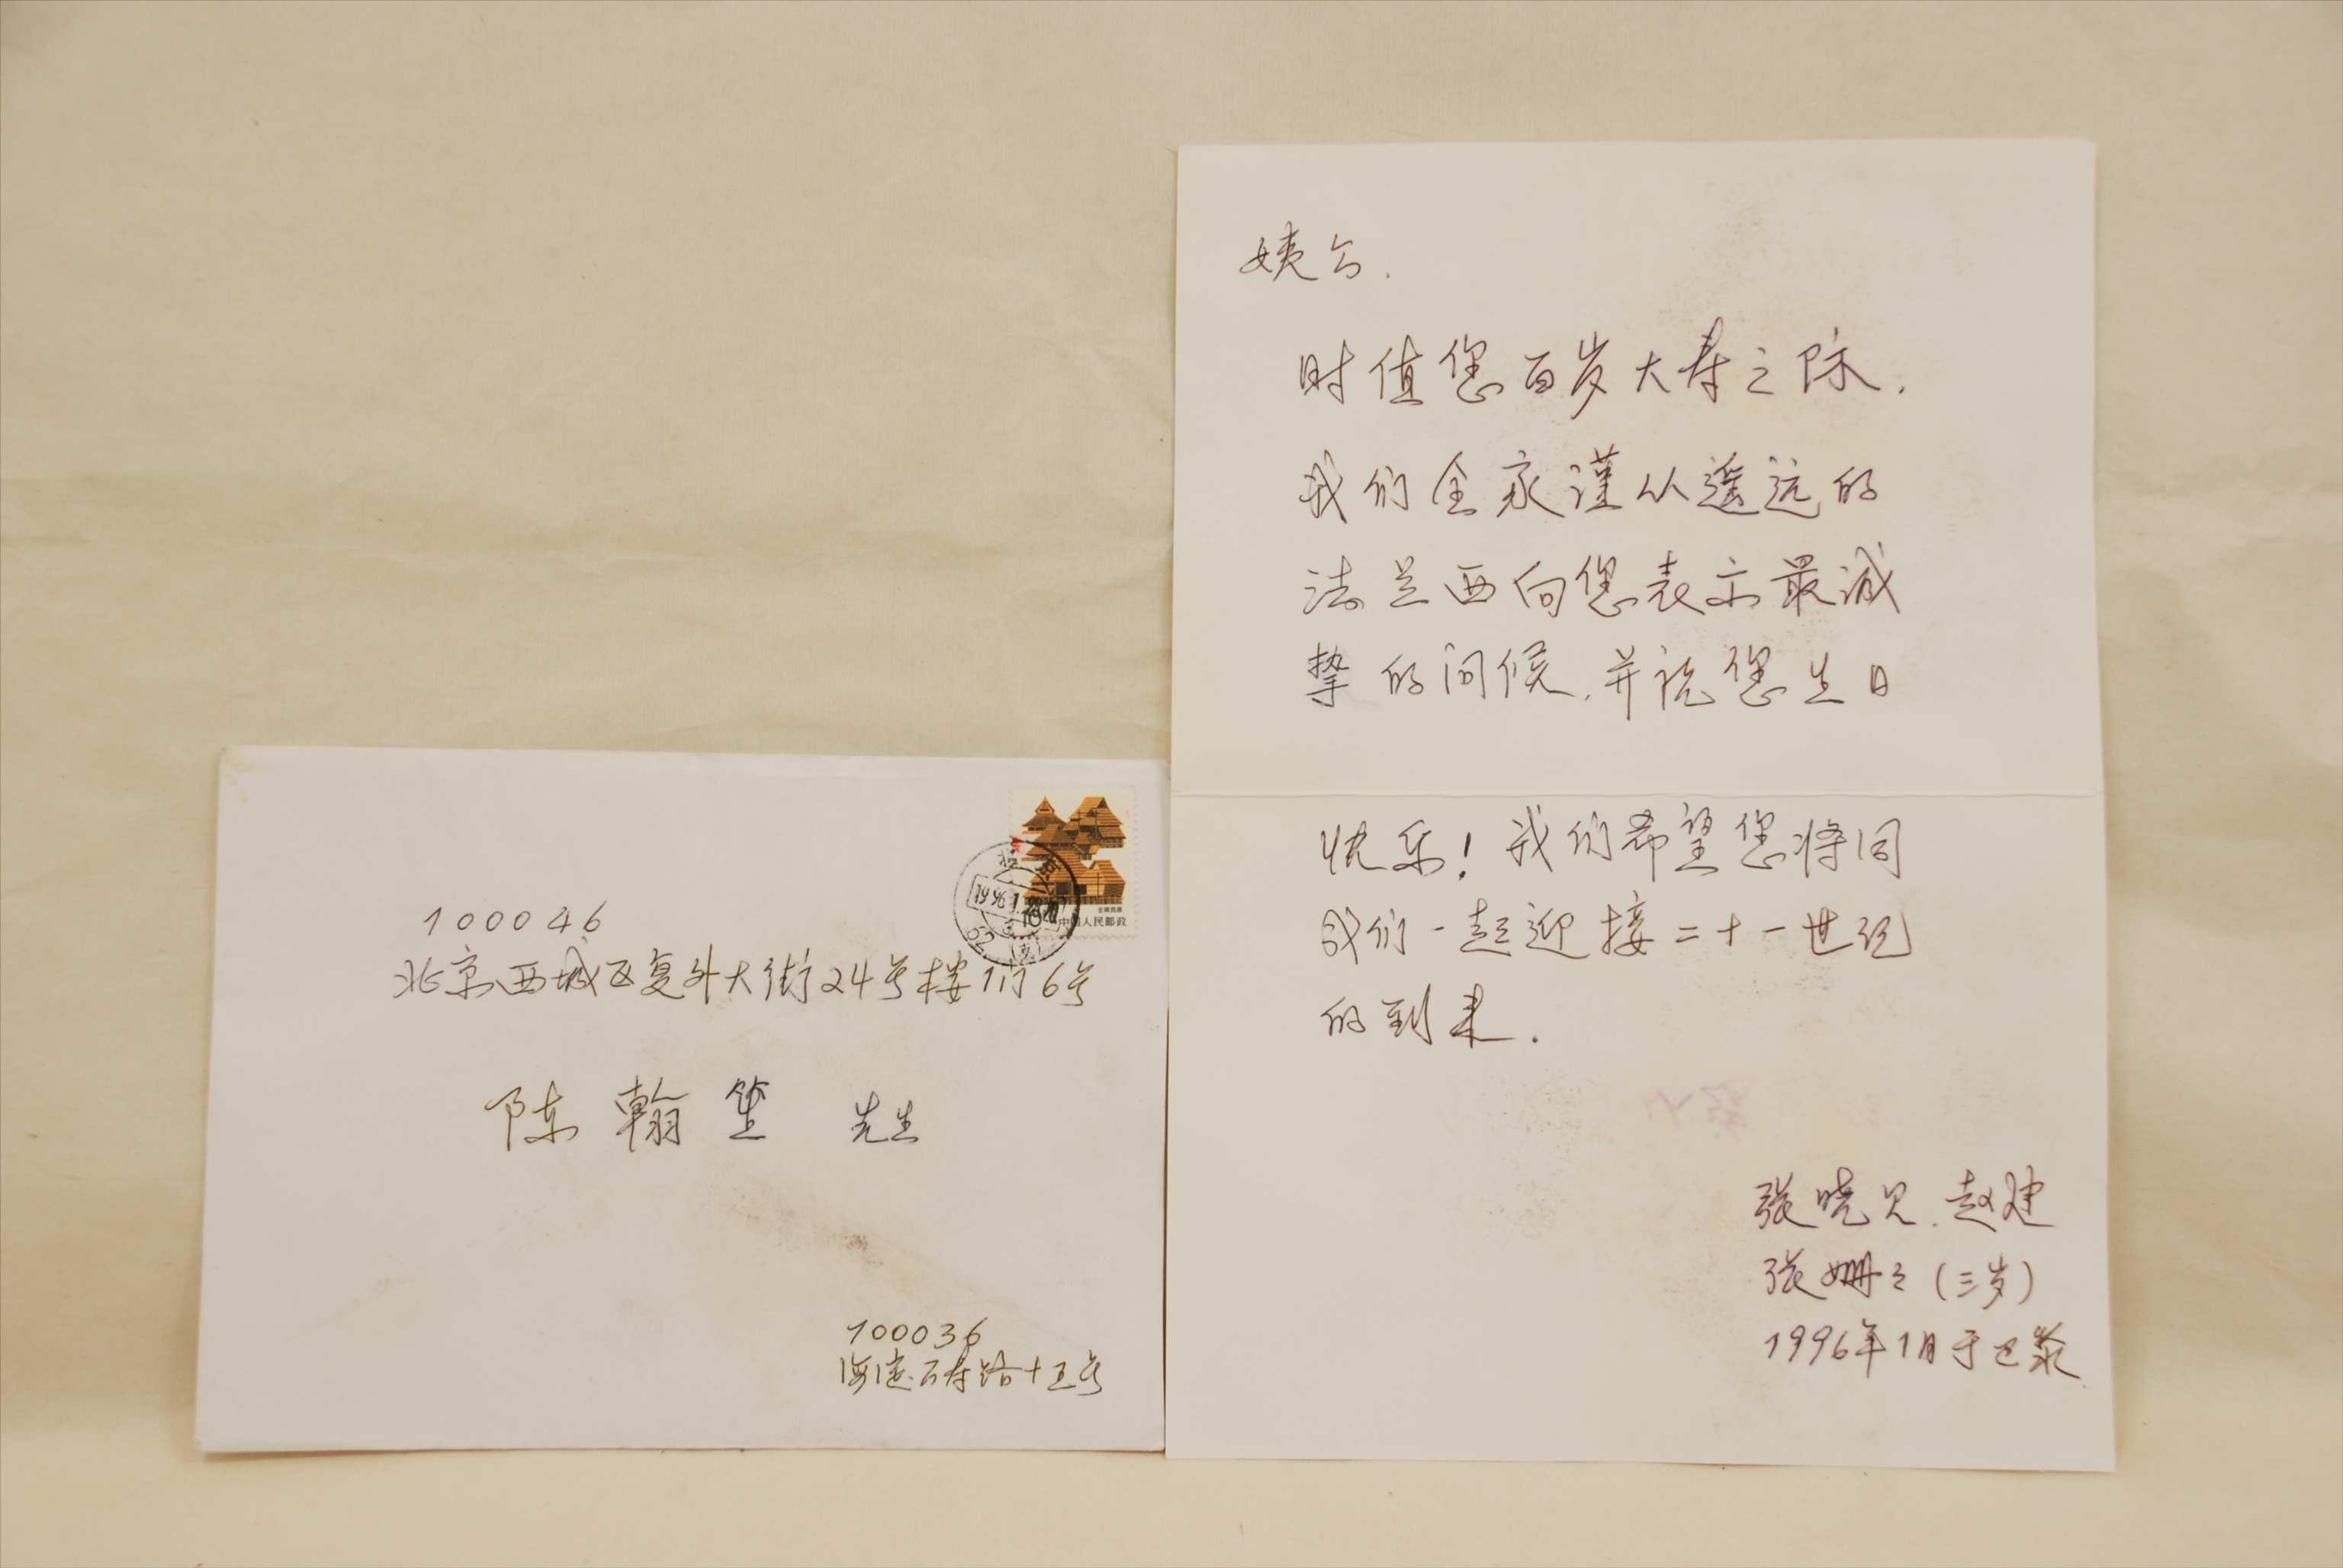 100046
北京西城区复外大街24号楼1门6号
陈翰笙 先生
100036
海淀万寿路十五号
中国人民邮政
姨公.
时值您百岁大寿之际.
我们全家谨从遥远的
法兰西向您表示最诚
挚的问候.并祝您生日
快乐!我们希望您将同
我们一起迎接二十一世纪
的到来.
张晓见.赵建
张姗之(三岁)
1996年1月于巴黎.